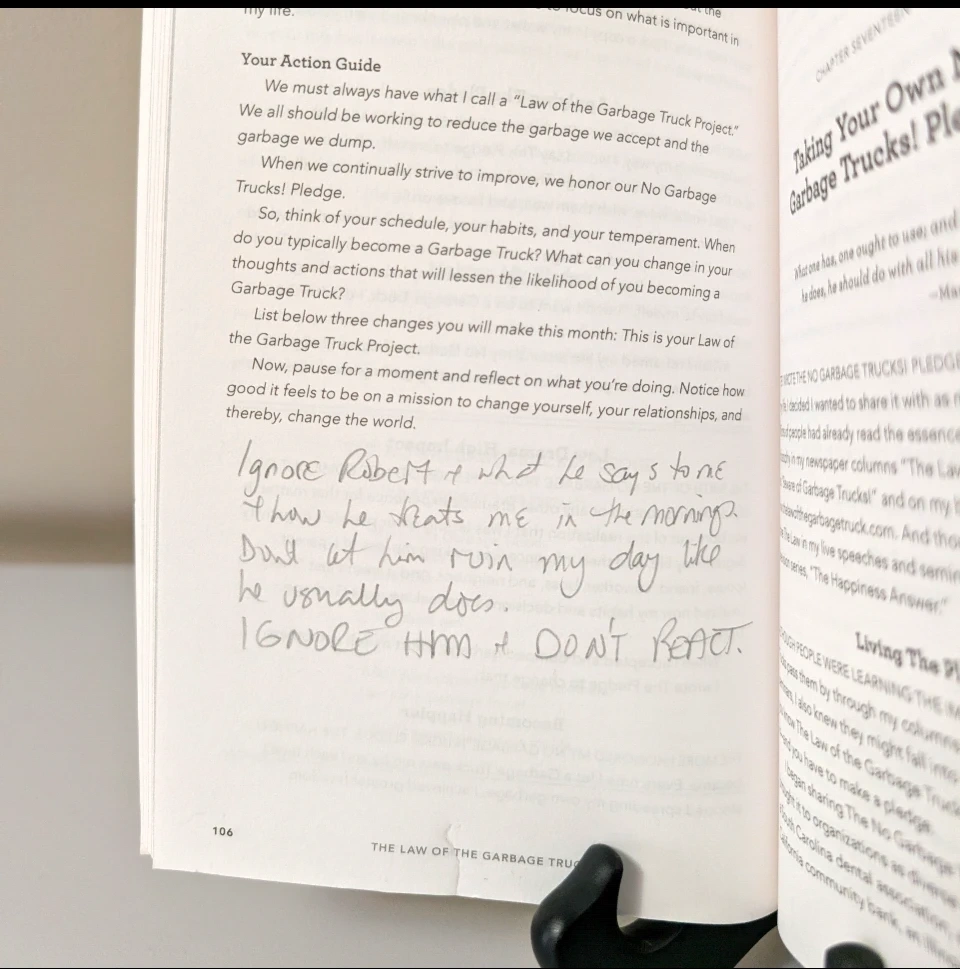 my life.
focus on what is important in
the
Your Action Guide
We must always have what I call a “Law of the Garbage Truck Project.”
We all should be working to reduce the garbage we accept and the
garbage we dump.
When we continually strive to improve, we honor our No Garbage
Trucks! Pledge.
So, think of your schedule, your habits, and your temperament. When
do you typically become a Garbage Truck? What can you change in your
thoughts and actions that will lessen the likelihood of you becoming a
Garbage Truck?
List below three changes you will make this month: This is your Law of
the Garbage Truck Project.
Now, pause for a moment and reflect on what you're doing. Notice how
good it feels to be on a mission to change yourself, your relationships, and
thereby, change the world.
Ignore Robert + what he says to me
+ how he treats me in the mornings.
Don't let him ruin my day like
he usually does.
IGNORE HIM + DON'T REACT.
106
THE LAW OF THE GARBAGE
CHAPTER SEVENTEEN
Taking Your Own
Garbage Trucks!
What one has, one ought to use; and
he does, he should do with all his
THE NO GARBAGE TRUCKS! PLEDGE
I decided I wanted to share it with as
people had already read the essence
in my newspaper columns “The
of Garbage Trucks!” and on my
And
in my live speeches and
series, “The Happiness Answer.”
Living The
PEOPLE WERE LEARNING THE
pass them by through my columns
I also knew they might fall into
The Law of the Garbage Truck
you have to make a pledge.
I began sharing The No Garbage
it to organizations as diverse
South Carolina dental association,
California community bank, an